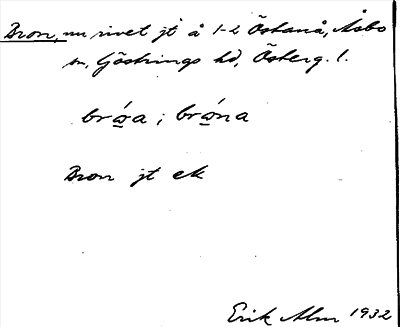 Bron, nu rivet jt å 1-2 Östanå, Åsbo
sn, Göstrings hd, Österg. l.
brώa ; brώna
Bron jt ek
Erik Alm 1932